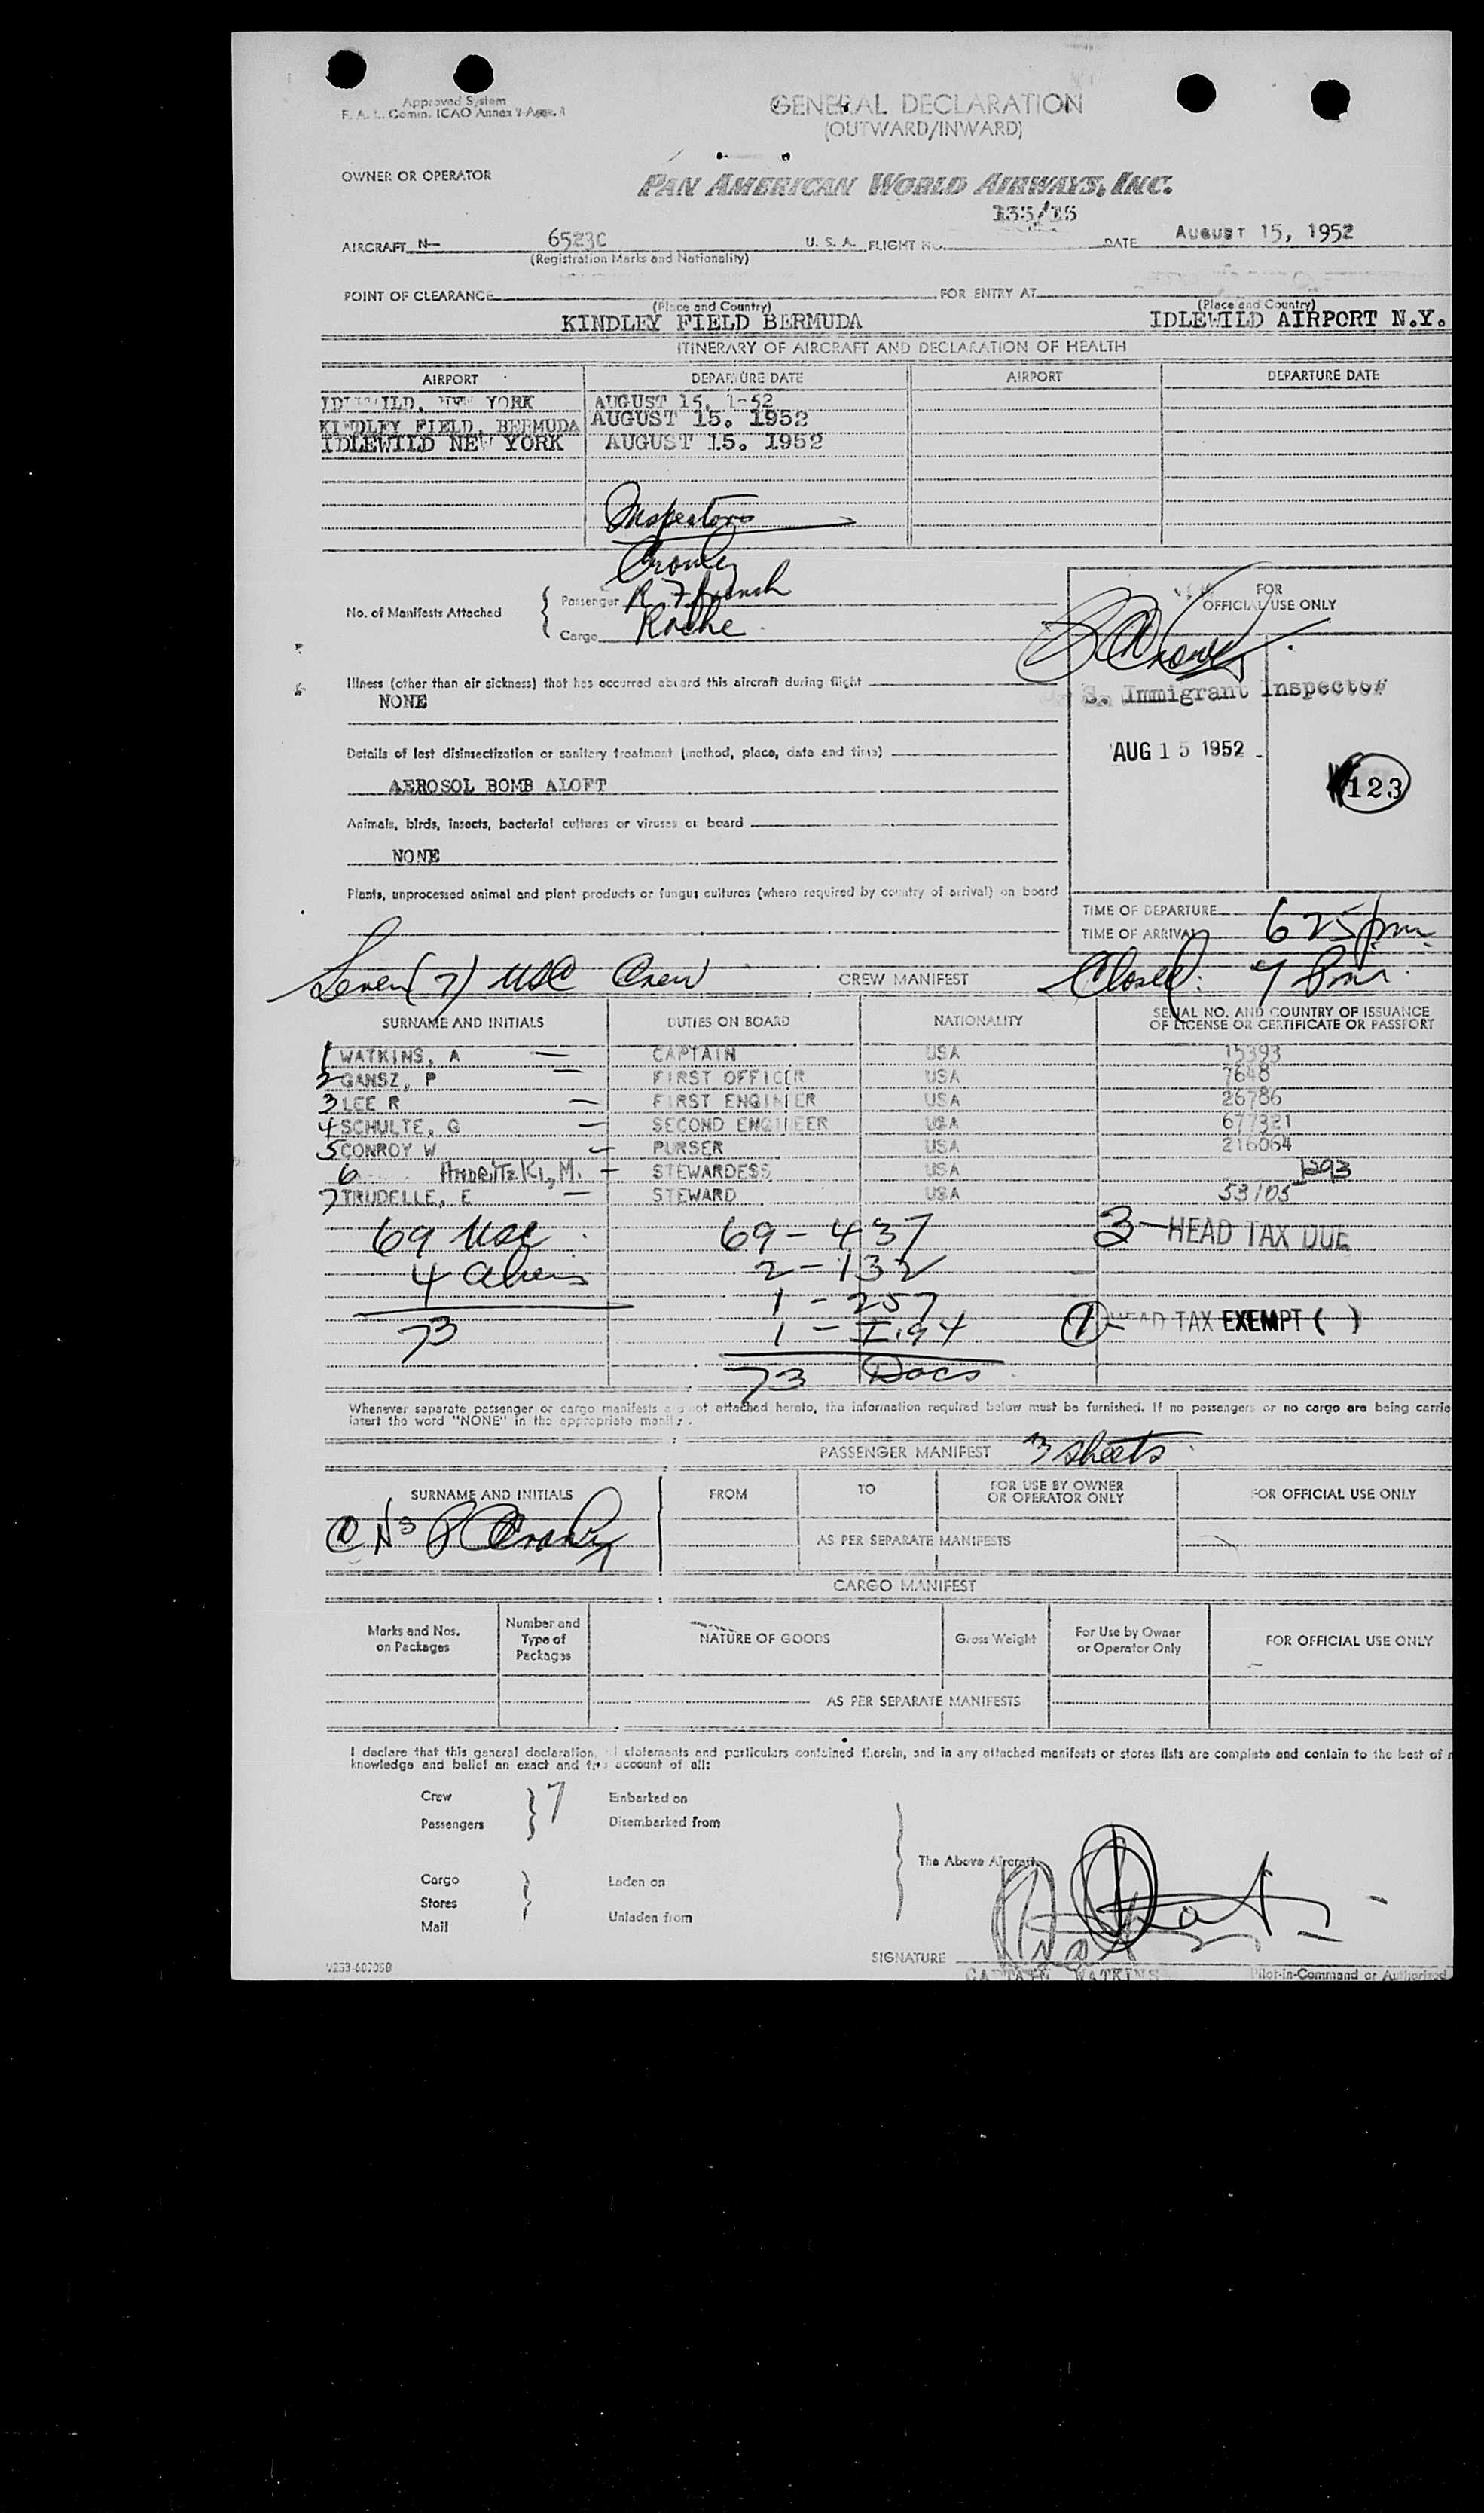 Approved System
F. A. L. Comm. ICAO Annex 9-App. 1
GENERAL DECLARATION
(OUTWARD/INWARD)
OWNER OR OPERATOR
PAN AMERICAN WORLD AIRWAYS, INC.
135/15
AIRCRAFT N— 6523C U. S. A. FLIGHT NO. DATE AUGUST 15, 1952
(Registration Marks and Nationality)
POINT OF CLEARANCE FOR ENTRY AT
(Place and Country) (Place and Country)
KINDLEY FIELD BERMUDA IDLEWILD AIRPORT N.Y.
ITINERARY OF AIRCRAFT AND DECLARATION OF HEALTH
AIRPORT DEPARTURE DATE AIRPORT DEPARTURE DATE
IDLEWILD, NEW YORK AUGUST 15, 1952
KINDLEY FIELD, BERMUDA AUGUST 15. 1952
IDLEWILD NEW YORK AUGUST 15. 1952
Inspectors
Cronley
No. of Manifests Attached
Passenger R F French
Cargo Roche
FOR
OFFICIAL USE ONLY
Illness (other than air sickness) that has occurred aboard this aircraft during flight
NONE
U. S. Immigrant Inspector
Details of last disinsectization or sanitary treatment (method, place, date and time)
AUG 15 1952
AEROSOL BOMB ALOFT
123
Animals, birds, insects, bacterial cultures or viruses on board
NONE
Plants, unprocessed animal and plant products or fungus cultures (where required by country of arrival) on board
TIME OF DEPARTURE
TIME OF ARRIVAL 6 25 pm
Seven (7) USC Crew CREW MANIFEST Closed: 7 pm.
SURNAME AND INITIALS DUTIES ON BOARD NATIONALITY SERIAL NO. AND COUNTRY OF ISSUANCE
OF LICENSE OR CERTIFICATE OR PASSPORT
1 WATKINS, A — CAPTAIN USA 15393
2 GANSZ, P — FIRST OFFICER USA 7648
3 LEE R — FIRST ENGINEER USA 26786
4 SCHULTE, G — SECOND ENGINEER USA 677321
5 CONROY W — PURSER USA 216064
6 ANDRITZKI, M. — STEWARDESS USA 1293
7 TRUDELLE, E — STEWARD USA 53105
69 USC 69 – 437 3 — HEAD TAX DUE
4 Aliens 2 – 132
1 – 257
73 1 – I.94 1 — HEAD TAX EXEMPT ( )
73 Docs
Whenever separate passenger or cargo manifests are not attached hereto, the information required below must be furnished. If no passengers or no cargo are being carrie
insert the word "NONE" in the appropriate manifest.
PASSENGER MANIFEST 3 sheets
SURNAME AND INITIALS FROM TO FOR USE BY OWNER
OR OPERATOR ONLY FOR OFFICIAL USE ONLY
AS PER SEPARATE MANIFESTS
CARGO MANIFEST
Marks and Nos.
on Packages
Number and
Type of
Packages
NATURE OF GOODS
Gross Weight
For Use by Owner
or Operator Only
FOR OFFICIAL USE ONLY
AS PER SEPARATE MANIFESTS
I declare that this general declaration, all statements and particulars contained therein, and in any attached manifests or stores lists are complete and contain to the best of m
knowledge and belief an exact and true account of all:
Crew 7 Embarked on
Passengers Disembarked from
The Above Aircraft
Cargo Laden on
Stores
Mail Unladen from
SIGNATURE
CAPTAIN WATKINS Pilot-in-Command or Authorized
V233-60705B